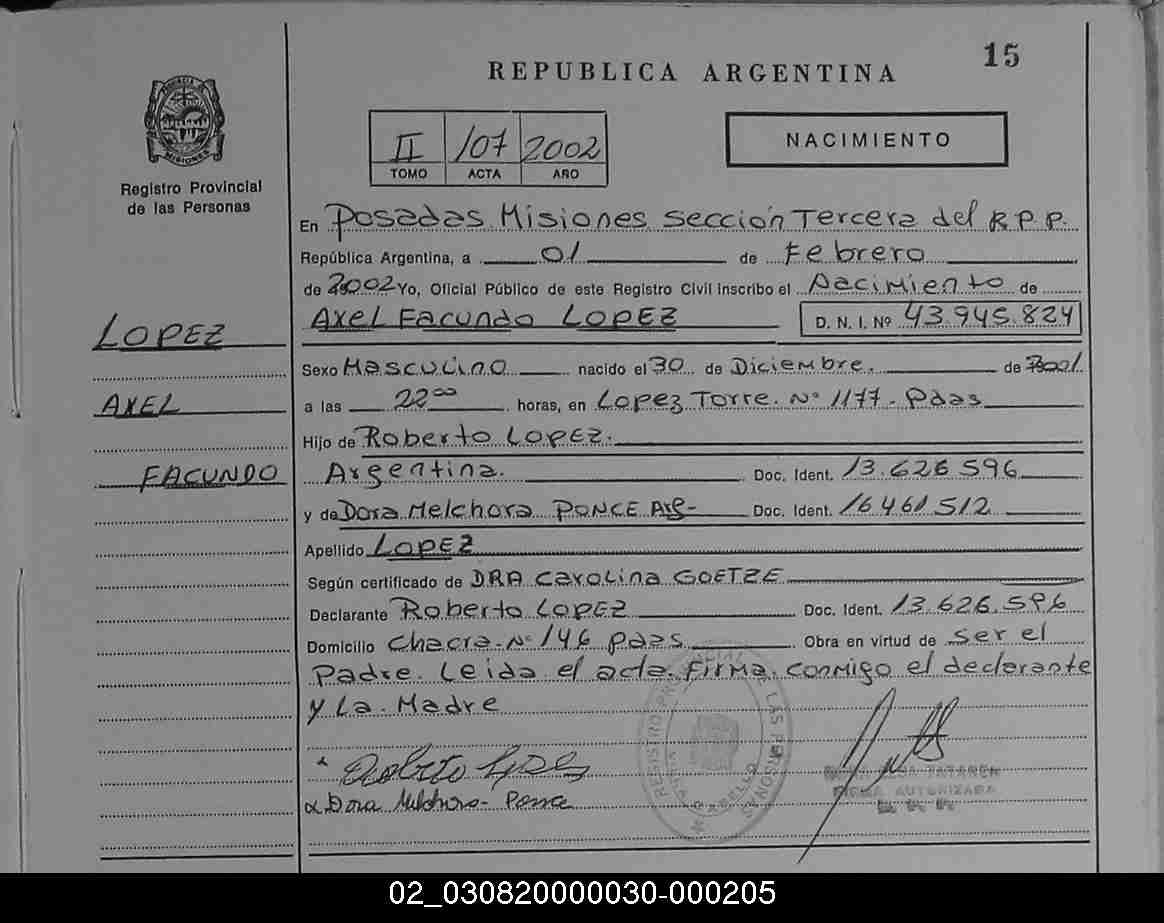 15
REPUBLICA ARGENTINA
PROVINCIA DE MISIONES
Registro Provincial
de las Personas
II 107 2002
TOMO ACTA AÑO
NACIMIENTO
En Posadas Misiones Sección Tercera del R.P.P.
República Argentina, a 01 de Febrero
de 2002 Yo, Oficial Público de este Registro Civil inscribo el Nacimiento de
Axel Facundo LOPEZ D. N. I. Nº 43.945.824
LOPEZ
AXEL
FACUNDO
Sexo Masculino nacido el 30 de Diciembre. de 2001
a las 22⁰⁰ horas, en Lopez Torre. Nº 1177. Pdas
Hijo de Roberto LOPEZ.
Argentina. Doc. Ident. 13.626.596
y de Dora Melchora PONCE Arg- Doc. Ident. 16.461.512
Apellido LOPEZ
Según certificado de DRA Carolina GOETZE
Declarante Roberto LOPEZ Doc. Ident. 13.626.596
Domicilio Chacra Nº 146 pdas Obra en virtud de ser el
Padre. Leida el acta firma conmigo el declarante
y La Madre
Roberto Lopez
Dora Melchora Ponce
REGISTRO PROVINCIAL LAS PERSONAS
VILLA CABELLO
FIRMA AUTORIZADA
02_030820000030-000205